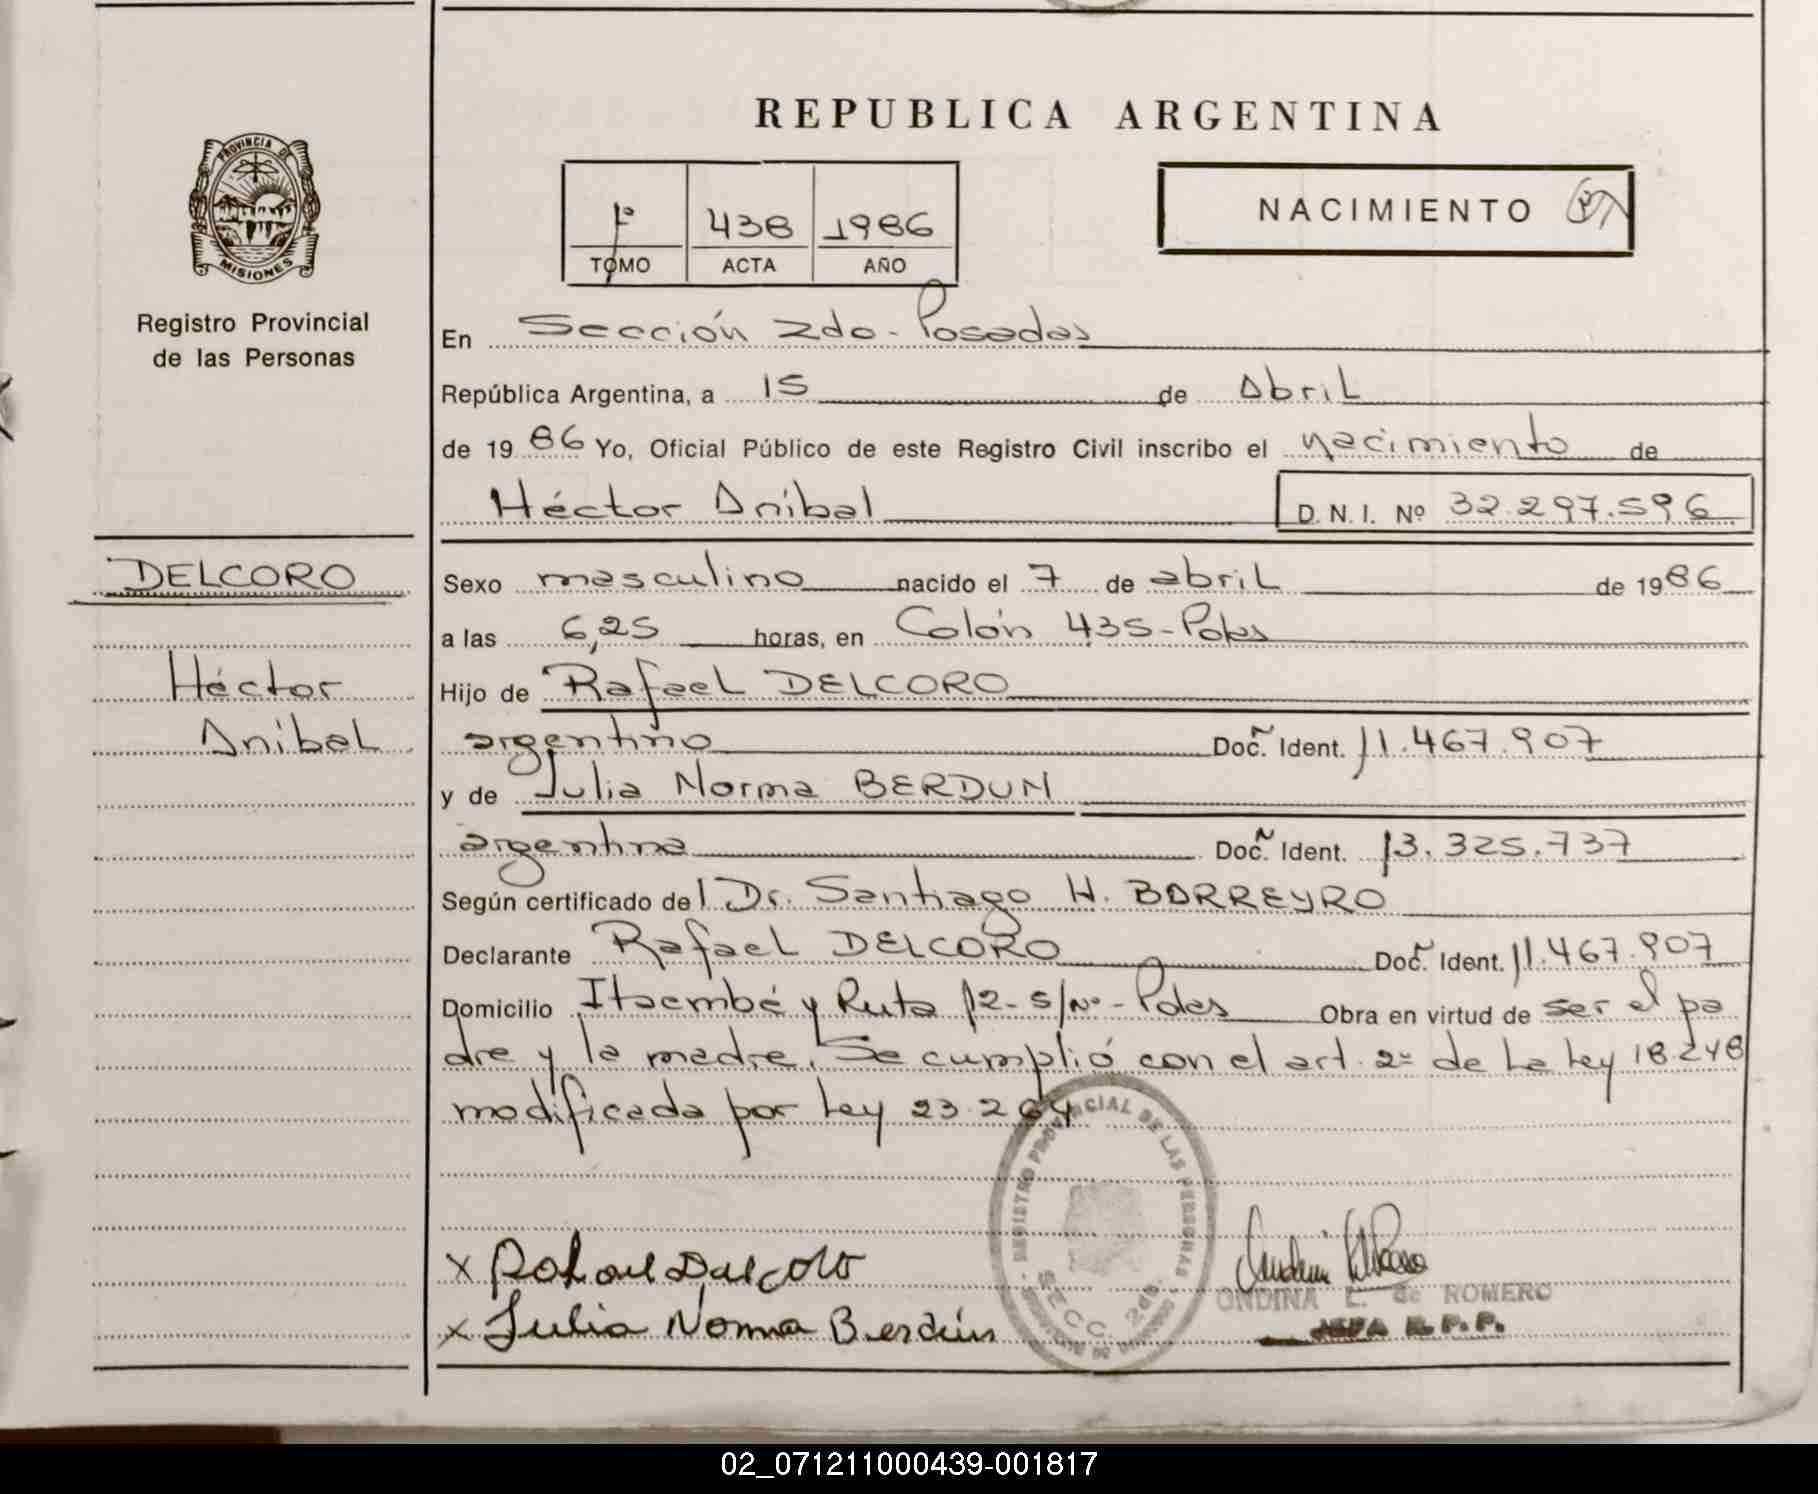 REPUBLICA ARGENTINA
PROVINCIA DE
MISIONES
Registro Provincial
de las Personas
1º 438 1986
TOMO ACTA AÑO
NACIMIENTO
En Sección 2da - Posadas
República Argentina, a 15 de Abril
de 1986 Yo, Oficial Público de este Registro Civil inscribo el nacimiento de
Héctor Anibal D. N. I. Nº 32.297.596
DELCORO
Héctor
Anibal
Sexo masculino nacido el 7 de abril de 1986
a las 6,25 horas, en Colón 435 - Pdas
Hijo de Rafael DELCORO
argentino Doc. Ident. 11.467.907
y de Julia Norma BERDUN
argentina Doc. Ident. 13.325.737
Según certificado del Dr. Santiago H. BARREYRO
Declarante Rafael DELCORO Doc. Ident. 11.467.907
Domicilio Itaembé y Ruta 12 - S/Nº - Pdas Obra en virtud de ser el pa
dre y la madre. Se cumplió con el art. 2º de La Ley 18.248
modificada por Ley 23.264
REGISTRO PROVINCIAL DE LAS PERSONAS
SECC. 2da.
x Rafael Delcoro
x Julia Norma Berdún
ONDINA L. de ROMERO
JEFA R.P.P.
02_071211000439-001817